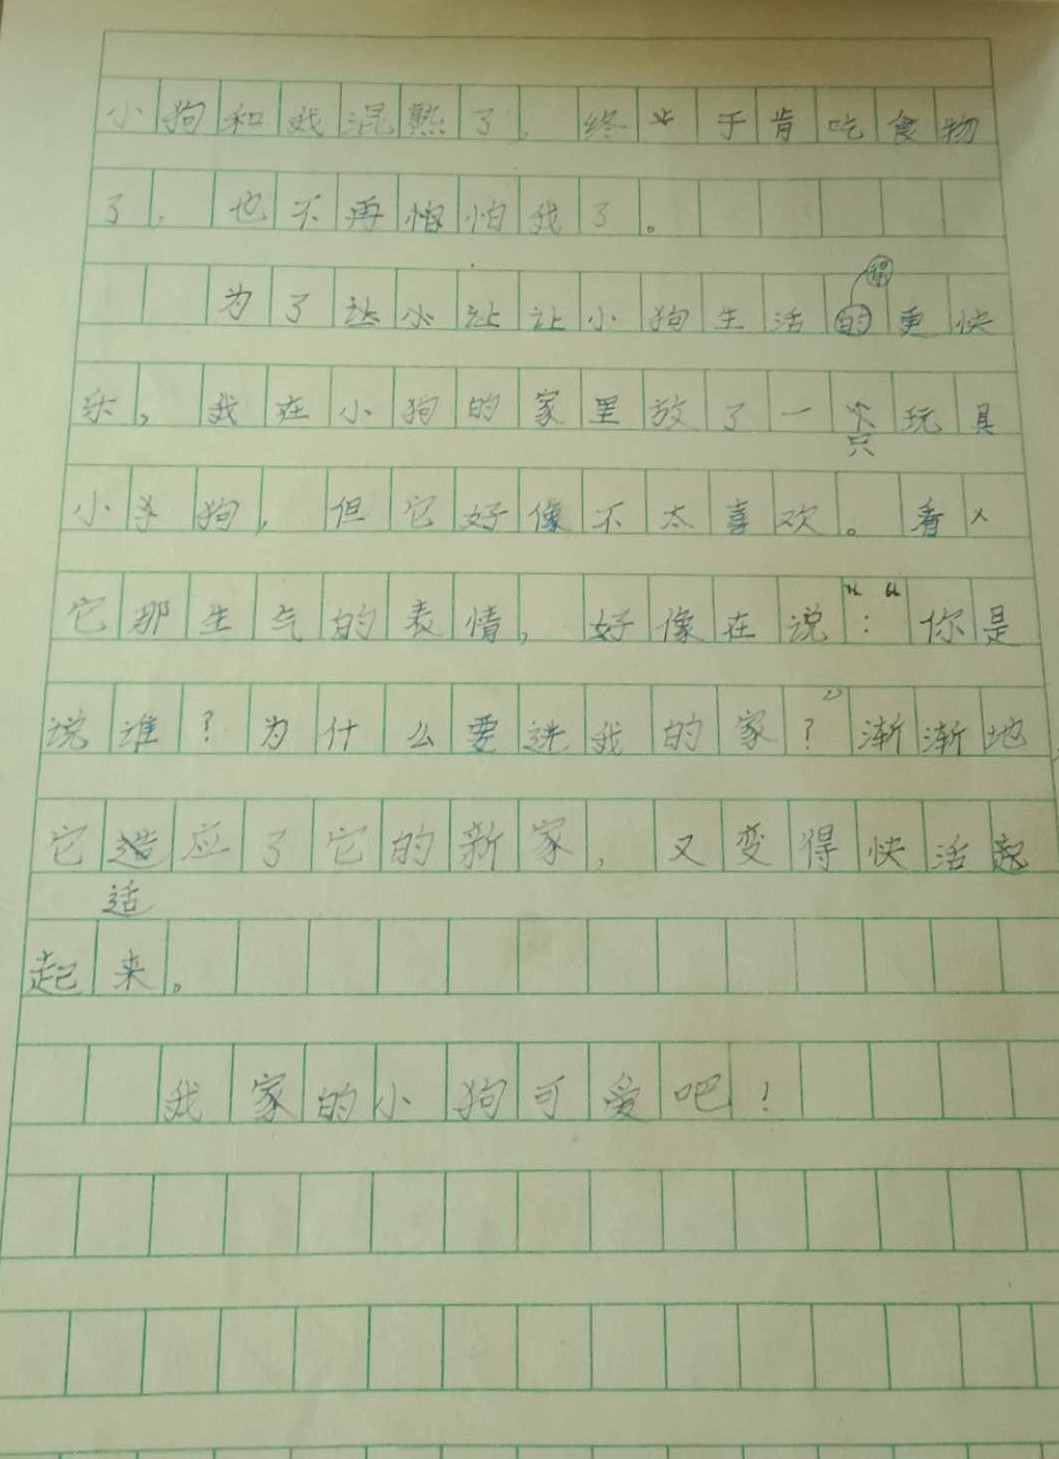 小狗和我混熟了，终于肯吃食物
了，也不再怕怕我了。
得
为了让小让让小狗生活的更快
乐，我在小狗的家里放了一个玩具
只
小狗，但它好像不太喜欢。看
它那生气的表情，好像在说：“你是
说谁？为什么要进我的家？”渐渐地
它造应了它的新家，又变得快活起
适
起来。
我家的小狗可爱吧！